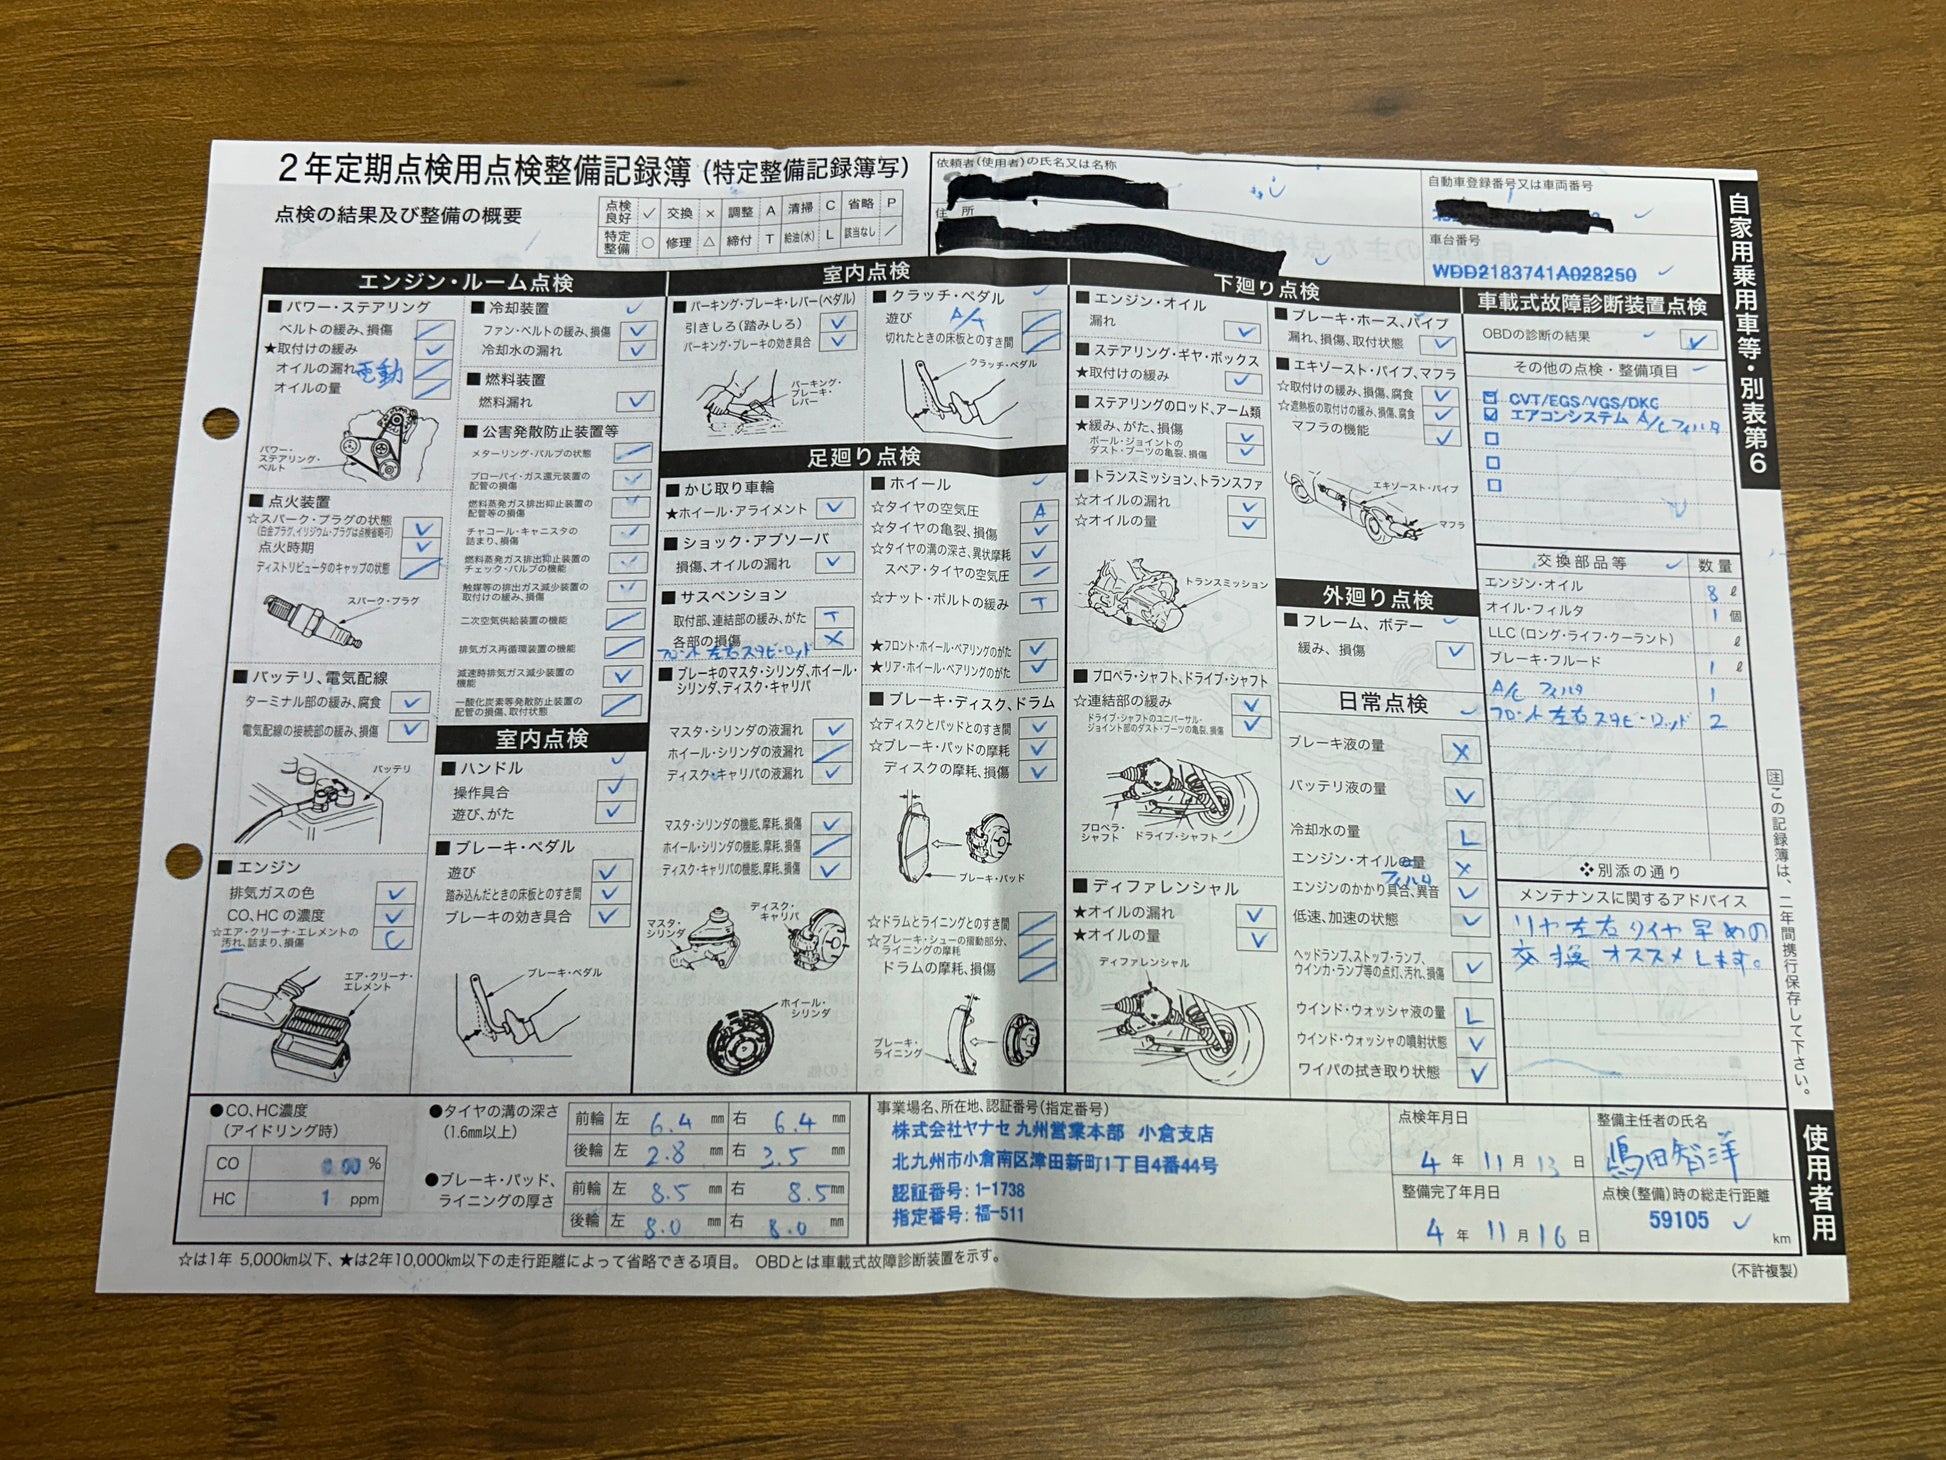 2年定期点検用点検整備記録簿(特定整備記録簿写)
点検の結果及び整備の概要
点検良好 ✓ 交換 × 調整 A 清掃 C 省略 P
特定整備 ○ 修理 △ 締付 T 給油(水) L 該当なし /
依頼者(使用者)の氏名又は名称
住 所
自動車登録番号又は車両番号
車台番号
WDD2183741A028250
自家用乗用車等・別表第6
エンジン・ルーム点検
■ パワー・ステアリング
ベルトの緩み、損傷 /
★取付けの緩み ✓
オイルの漏れ /
電動
オイルの量 /
パワー・ステアリング・ベルト
■ 点火装置
☆スパーク・プラグの状態 ✓
(白金プラグ、イリジウム・プラグは点検省略可)
点火時期 ✓
ディストリビュータのキャップの状態 /
スパーク・プラグ
■ バッテリ、電気配線
ターミナル部の緩み、腐食 ✓
電気配線の接続部の緩み、損傷 ✓
バッテリ
■ エンジン
排気ガスの色 ✓
CO、HCの濃度 ✓
☆エア・クリーナ・エレメントの汚れ、詰まり、損傷 C
エア・クリーナ・エレメント
■ 冷却装置
ファン・ベルトの緩み、損傷 ✓
冷却水の漏れ ✓
■ 燃料装置
燃料漏れ ✓
■ 公害発散防止装置等
メターリング・バルブの状態 /
ブローバイ・ガス還元装置の配管の損傷 ✓
燃料蒸発ガス排出抑止装置の配管等の損傷 ✓
チャコール・キャニスタの詰まり、損傷 ✓
燃料蒸発ガス排出抑止装置のチェック・バルブの機能 ✓
触媒等の排出ガス減少装置の取付けの緩み、損傷 ✓
二次空気供給装置の機能 /
排気ガス再循環装置の機能 /
減速時排気ガス減少装置の機能 ✓
一酸化炭素等発散防止装置の配管の損傷、取付状態 /
室内点検
■ ハンドル
操作具合 ✓
遊び、がた ✓
■ ブレーキ・ペダル
遊び ✓
踏み込んだときの床板とのすき間 ✓
ブレーキの効き具合 ✓
ブレーキ・ペダル
室内点検
■ パーキング・ブレーキ・レバー(ペダル)
引きしろ(踏みしろ) ✓
パーキング・ブレーキの効き具合 ✓
パーキング・ブレーキ・レバー
■ クラッチ・ペダル
遊び A/T /
切れたときの床板とのすき間 /
クラッチ・ペダル
足廻り点検
■ かじ取り車輪
★ホイール・アライメント ✓
■ ショック・アブソーバ
損傷、オイルの漏れ ✓
■ サスペンション
取付部、連結部の緩み、がた T
各部の損傷 ×
フロント左右スタビロッド
■ ブレーキのマスタ・シリンダ、ホイール・シリンダ、ディスク・キャリパ
マスタ・シリンダの液漏れ ✓
ホイール・シリンダの液漏れ /
ディスク・キャリパの液漏れ ✓
マスタ・シリンダの機能、摩耗、損傷 ✓
ホイール・シリンダの機能、摩耗、損傷 /
ディスク・キャリパの機能、摩耗、損傷 ✓
マスタ・シリンダ
ディスク・キャリパ
ホイール・シリンダ
■ ホイール
☆タイヤの空気圧 A
☆タイヤの亀裂、損傷 ✓
☆タイヤの溝の深さ、異状摩耗 ✓
スペア・タイヤの空気圧 /
☆ナット・ボルトの緩み T
★フロント・ホイール・ベアリングのがた ✓
★リア・ホイール・ベアリングのがた ✓
■ ブレーキ・ディスク、ドラム
☆ディスクとパッドとのすき間 ✓
☆ブレーキ・パッドの摩耗 ✓
ディスクの摩耗、損傷 ✓
ブレーキ・パッド
☆ドラムとライニングとのすき間 /
☆ブレーキ・シューの摺動部分、ライニングの摩耗 /
ドラムの摩耗、損傷 /
ブレーキ・ライニング
下廻り点検
■ エンジン・オイル
漏れ ✓
■ ステアリング・ギヤ・ボックス
★取付けの緩み ✓
■ ステアリングのロッド、アーム類
★緩み、がた、損傷 ✓
ボール・ジョイントのダスト・ブーツの亀裂、損傷 ✓
■ トランスミッション、トランスファ
☆オイルの漏れ ✓
☆オイルの量 ✓
トランスミッション
■ プロペラ・シャフト、ドライブ・シャフト
☆連結部の緩み ✓
ドライブ・シャフトのユニバーサル・ジョイント部のダスト・ブーツの亀裂、損傷 ✓
プロペラ・シャフト
ドライブ・シャフト
■ ディファレンシャル
★オイルの漏れ ✓
★オイルの量 ✓
ディファレンシャル
■ ブレーキ・ホース、パイプ
漏れ、損傷、取付状態 ✓
■ エキゾースト・パイプ、マフラ
☆取付けの緩み、損傷、腐食 ✓
☆遮熱板の取付けの緩み、損傷、腐食 ✓
マフラの機能 ✓
エキゾースト・パイプ
マフラ
外廻り点検
■ フレーム、ボデー
緩み、損傷 ✓
日常点検
ブレーキ液の量 ×
バッテリ液の量 ✓
冷却水の量 L
エンジン・オイルの量 ×
フィルタ
エンジンのかかり具合、異音 ✓
低速、加速の状態 ✓
ヘッドランプ、ストップ・ランプ、ウインカ・ランプ等の点灯、汚れ、損傷 ✓
ウインド・ウォッシャ液の量 L
ウインド・ウォッシャの噴射状態 ✓
ワイパの拭き取り状態 ✓
車載式故障診断装置点検
OBDの診断の結果 ✓
その他の点検・整備項目
☑ CVT/EGS/VGS/DKG
☑ エアコンシステム A/Cフィルタ
交換部品等 数量
エンジン・オイル 8 ℓ
オイル・フィルタ 1 個
LLC(ロング・ライフ・クーラント) ℓ
ブレーキ・フルード 1 ℓ
A/C フィルタ 1
フロント左右スタビロッド 2
❖別添の通り
メンテナンスに関するアドバイス
リヤ左右タイヤ早めの
交換オススメします。
注この記録簿は、二年間携行保存して下さい。
使用者用
●CO、HC濃度
(アイドリング時)
CO 0.00 %
HC 1 ppm
●タイヤの溝の深さ
(1.6mm以上)
前輪 左 6.4 mm 右 6.4 mm
後輪 左 2.8 mm 右 3.5 mm
●ブレーキ・パッド、ライニングの厚さ
前輪 左 8.5 mm 右 8.5 mm
後輪 左 8.0 mm 右 8.0 mm
事業場名、所在地、認証番号(指定番号)
株式会社ヤナセ 九州営業本部 小倉支店
北九州市小倉南区津田新町1丁目4番44号
認証番号: 1-1738
指定番号: 福-511
点検年月日
4 年 11 月 13 日
整備完了年月日
4 年 11 月 16 日
整備主任者の氏名
嶋田智洋
点検(整備)時の総走行距離
59105 km
☆は1年 5,000km以下、★は2年10,000km以下の走行距離によって省略できる項目。 OBDとは車載式故障診断装置を示す。
(不許複製)